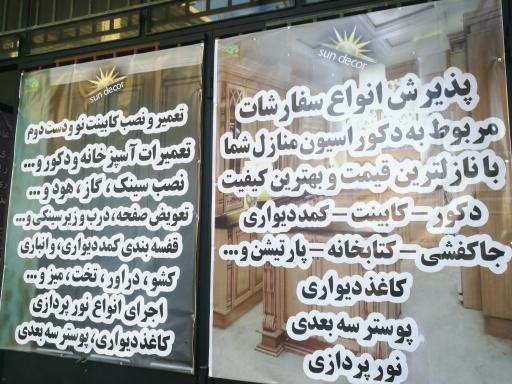 sun decor
پذیرش انواع سفارشات
مربوط به دکوراسیون منازل شما
با نازلترین قیمت و بهترین کیفیت
دکور - کابینت - کمددیواری
جاکفشی - کتابخانه - پارتیشن و...
کاغذ دیواری
پوستر سه بعدی
نور پردازی
sun decor
تعمیر و نصب کابینت نو و دست دوم
تعمیرات آسپزخانه و دکور و...
نصب سینک ، گاز ، هود و...
تعویض صفحه، درب و زیر سینکی و...
قفسه بندی کمددیواری، و انباری
کشو ، دراور ، تخت ، میز و...
اجرای انواع نور پردازی
کاغذ دیواری، پوستر سه بعدی